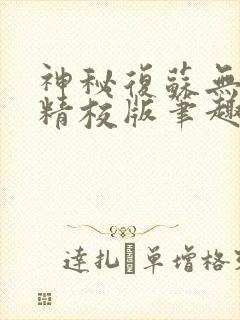 神秘復蘇無
精校版筆趣
達扎 單增格